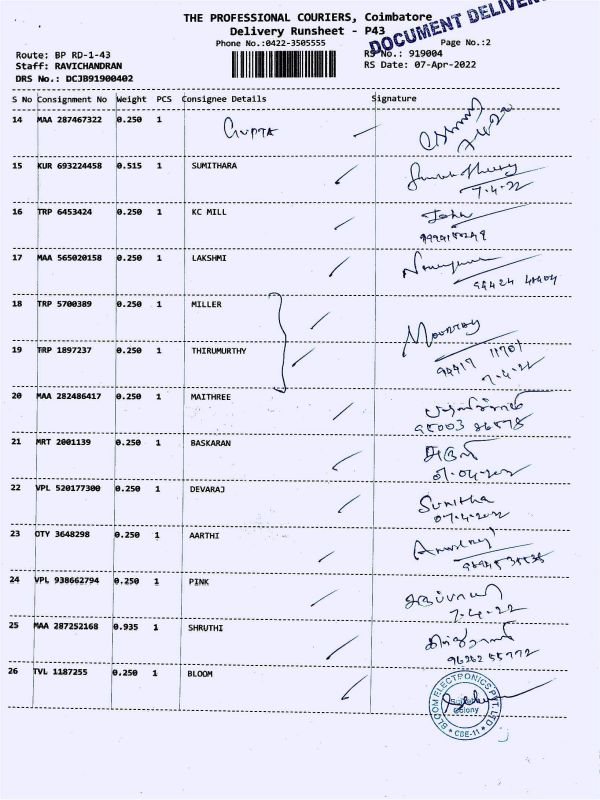 THE PROFESSIONAL COURIERS, Coimbatore
Delivery Runsheet - P43
DOCUMENT
Phone No.:0422-3505555
Page No.:2
Route: BP RD-1-43
RS No.: 919004
Staff: RAVICHANDRAN
RS Date: 07-Apr-2022
DRS No.: DCJB91900402
S No Consignment No Weight PCS Consignee Details Signature
14 MAA 287467322 0.250 1 GUPTA
15 KUR 693224458 0.515 1 SUMITHARA
7-4-22
16 TRP 6453424 0.250 1 KC MILL John
17 MAA 565020158 0.250 1 LAKSHMI
18 TRP 5700389 0.250 1 MILLER
19 TRP 1897237 0.250 1 THIRUMURTHY
7-4-22
20 MAA 282486417 0.250 1 MAITHREE
21 MRT 2001139 0.250 1 BASKARAN
22 VPL 520177300 0.250 1 DEVARAJ Sunitha
23 OTY 3648298 0.250 1 AARTHI
24 VPL 938662794 0.250 1 PINK
7-4-22
25 MAA 287252168 0.935 1 SHRUTHI
96262 55772
26 TVL 1187255 0.250 1 BLOOM
BLOOM ELECTRONICS PVT. LTD
Colony
CBE-11